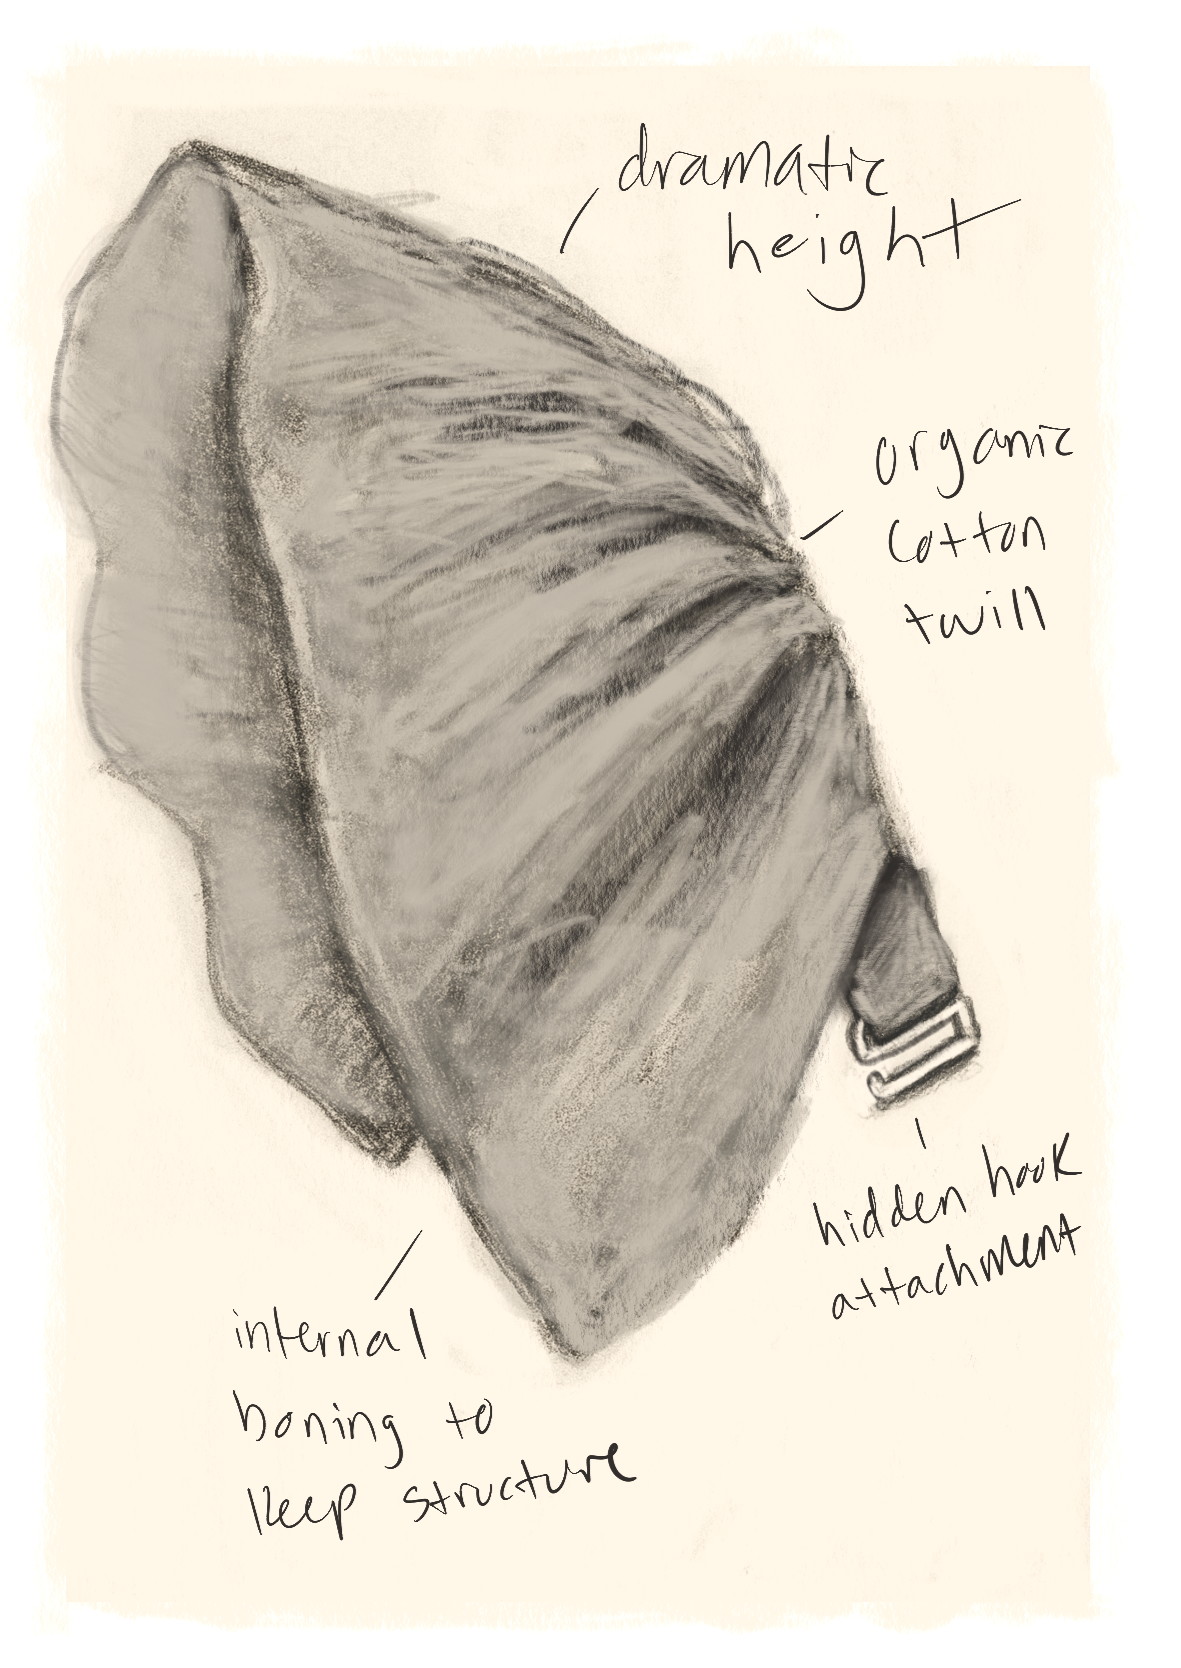 dramatic
height
organic
cotton
twill
hidden hook
attachment
internal
boning to
keep structure